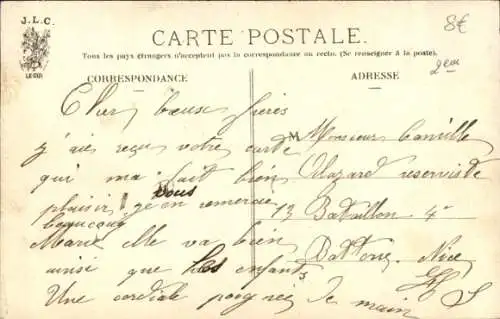 J.L.C.
8€
CARTE POSTALE.
2em
Tous les pays étrangers n'acceptent pas la correspondance au recto. (Se renseigner à la poste).
CORRESPONDANCE
Cher beaux frères
j'ai reçu votre carte
qui ma fait bien
plaisir je vous en remercie
beaucoup
Marie Elle va bien
ainsi que les enfants
Une cordiale poignée de main
ADRESSE
M Monsieur Camille
Mazard reserviste
13 Bataillon 4e
Batterie Nice